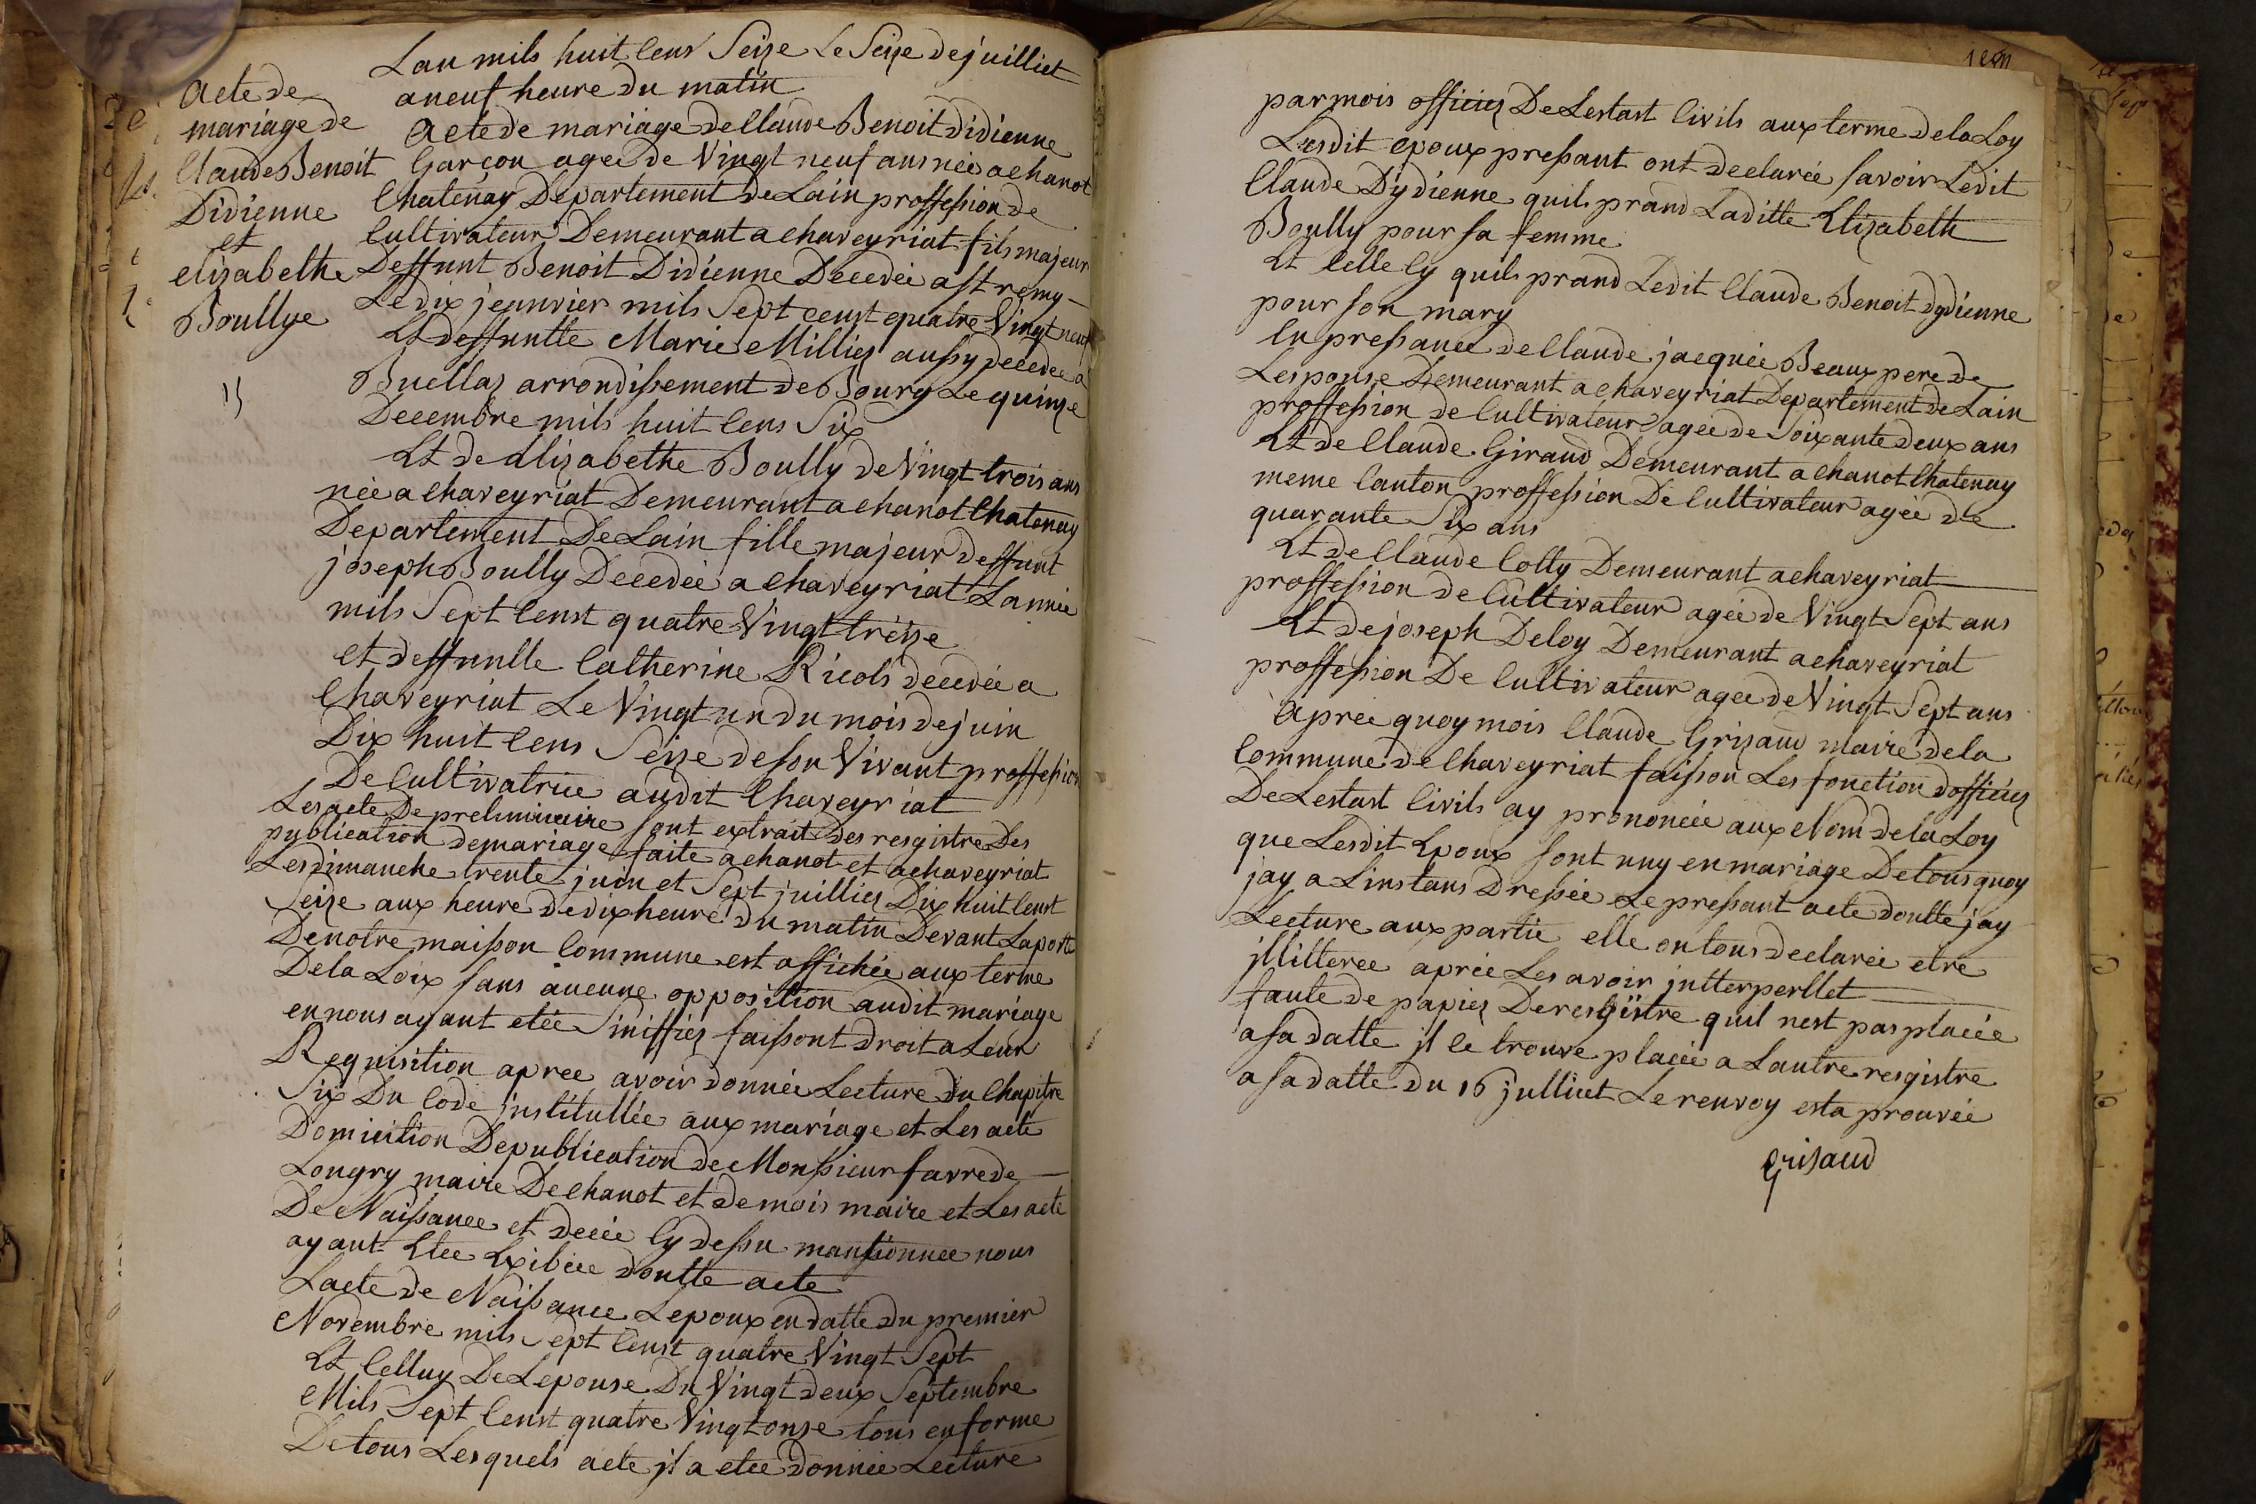 Acte de
mariage de
Claude Benoit
Didienne
et
elizabethe
Boullye
Lan mils huit Cens Seize Le Seize de juilliet
a neuf heure Du matin
Acte de mariage de Claude Benoit Didienne
Garçon agee de Vingt neuf ans née a chanot
Chatenay Departement de Lain proffession de
Cultivateur Demeurant a chaveyriat fils majeur
Deffunt Benoit Didienne Decedée a st remy
Le dix jeanvier mils Sept censt quatre Vingt neuf
Et deffuntte Marie Milliez aussy decedee a
Buellaz arrondissement de Bourg Le quinze
Decembre mils huit Cens Six
Et de Elizabethe Boully de Vingt trois ans
née a Chaveyriat Demeurant a chanot Chatenay
Departement De Lain fille majeur deffunt
joseph Boully Decedée a Chaveyriat Lannée
mils Sept Censt quatre Vingt tréize
et deffuntte Catherine Ricols decedée a
Chaveyriat Le Vingt un du mois de juin
Dix huit Cens Seize de son Vivant proffession
De Cultivatrice audit Chaveyriat
Les acte De preliminaire sont extrait Des resgistre Des
publication de mariage faite a chanot et a chaveyriat
Les dimanche trente juin et Sept juilliez Dix huit Censt
Seize aux heure de dix heure du matin Devant La porte
De notre maison Commune est affichée aux terme
De la Loix sans aucune opposition audit mariage
en nous ayant etée Siniffiez faissont Droit a Leur
Requisition apree avoir donnée Lecture Du Chapitre
Six Du Code jnstitullée aux mariage et Les acte
Domicition De publication de Monssieur favre de
Longry maire De chanot et de mois maire et Les acte
De Naissance et decée Cy dessu mantionnee nous
ayant Etee Exibéee dontte acte
Lacte de Naissance Lepoux en datte du premier
Novembre mils Sept Censt quatre Vingt Sept
Et Celluy De Lepouse Du Vingt deux Septembre
Mils Sept Censt quatre Vingt onze tous en forme
De tous Les quels acte jl a etee Donnée Lecture
par mois officiez De Lestast Civils aux terme de la Loy
Lesdit epoux pressant ont declarée savoir Ledit
Claude Dydienne quils prand Laditte Elizabeth
Boully pour sa femme
Et Celle Cy quils prand Ledit Claude Benoit dydienne
pour son mary
En pressance de Claude jacquée Beaux pere de
Lespouse Demeurant a chaveyriat Departement de Lain
proffession de Cultivateur agee de Soixante deux ans
Et de Claude Giraud Demeurant a chanot Chatenay
meme Canton proffession De Cultivateur agée de
quarante Six ans
Et de Claude Colly Demeurant a chaveyriat
proffession de Cultivateur agée de Vingt Sept ans
Et de joseph Deloy Demeurant a chaveyriat
proffession De Cultivateur agee de Vingt Sept ans
Apree quoy mois Claude Grizaud maire de la
Commune de Chaveyriat faisson Les fonction dofficiez
De Lestast Civils ay prononcée aux Nom de la Loy
que Lesdit Epoux sont uny en mariage De tous quoy
jay a Linstans Dressée Le pressant acte doutte jay
Lecture aux partie elle on tous declarée etre
jllitteree aprée Les avoir jntterpellet
faute de papiez De resgistre quil nest pas placée
a sa datte jl ce trouve placée a Lautre resgistre
a sa datte du 16 juilliet Le renvoy est a prouvée
Grisaud